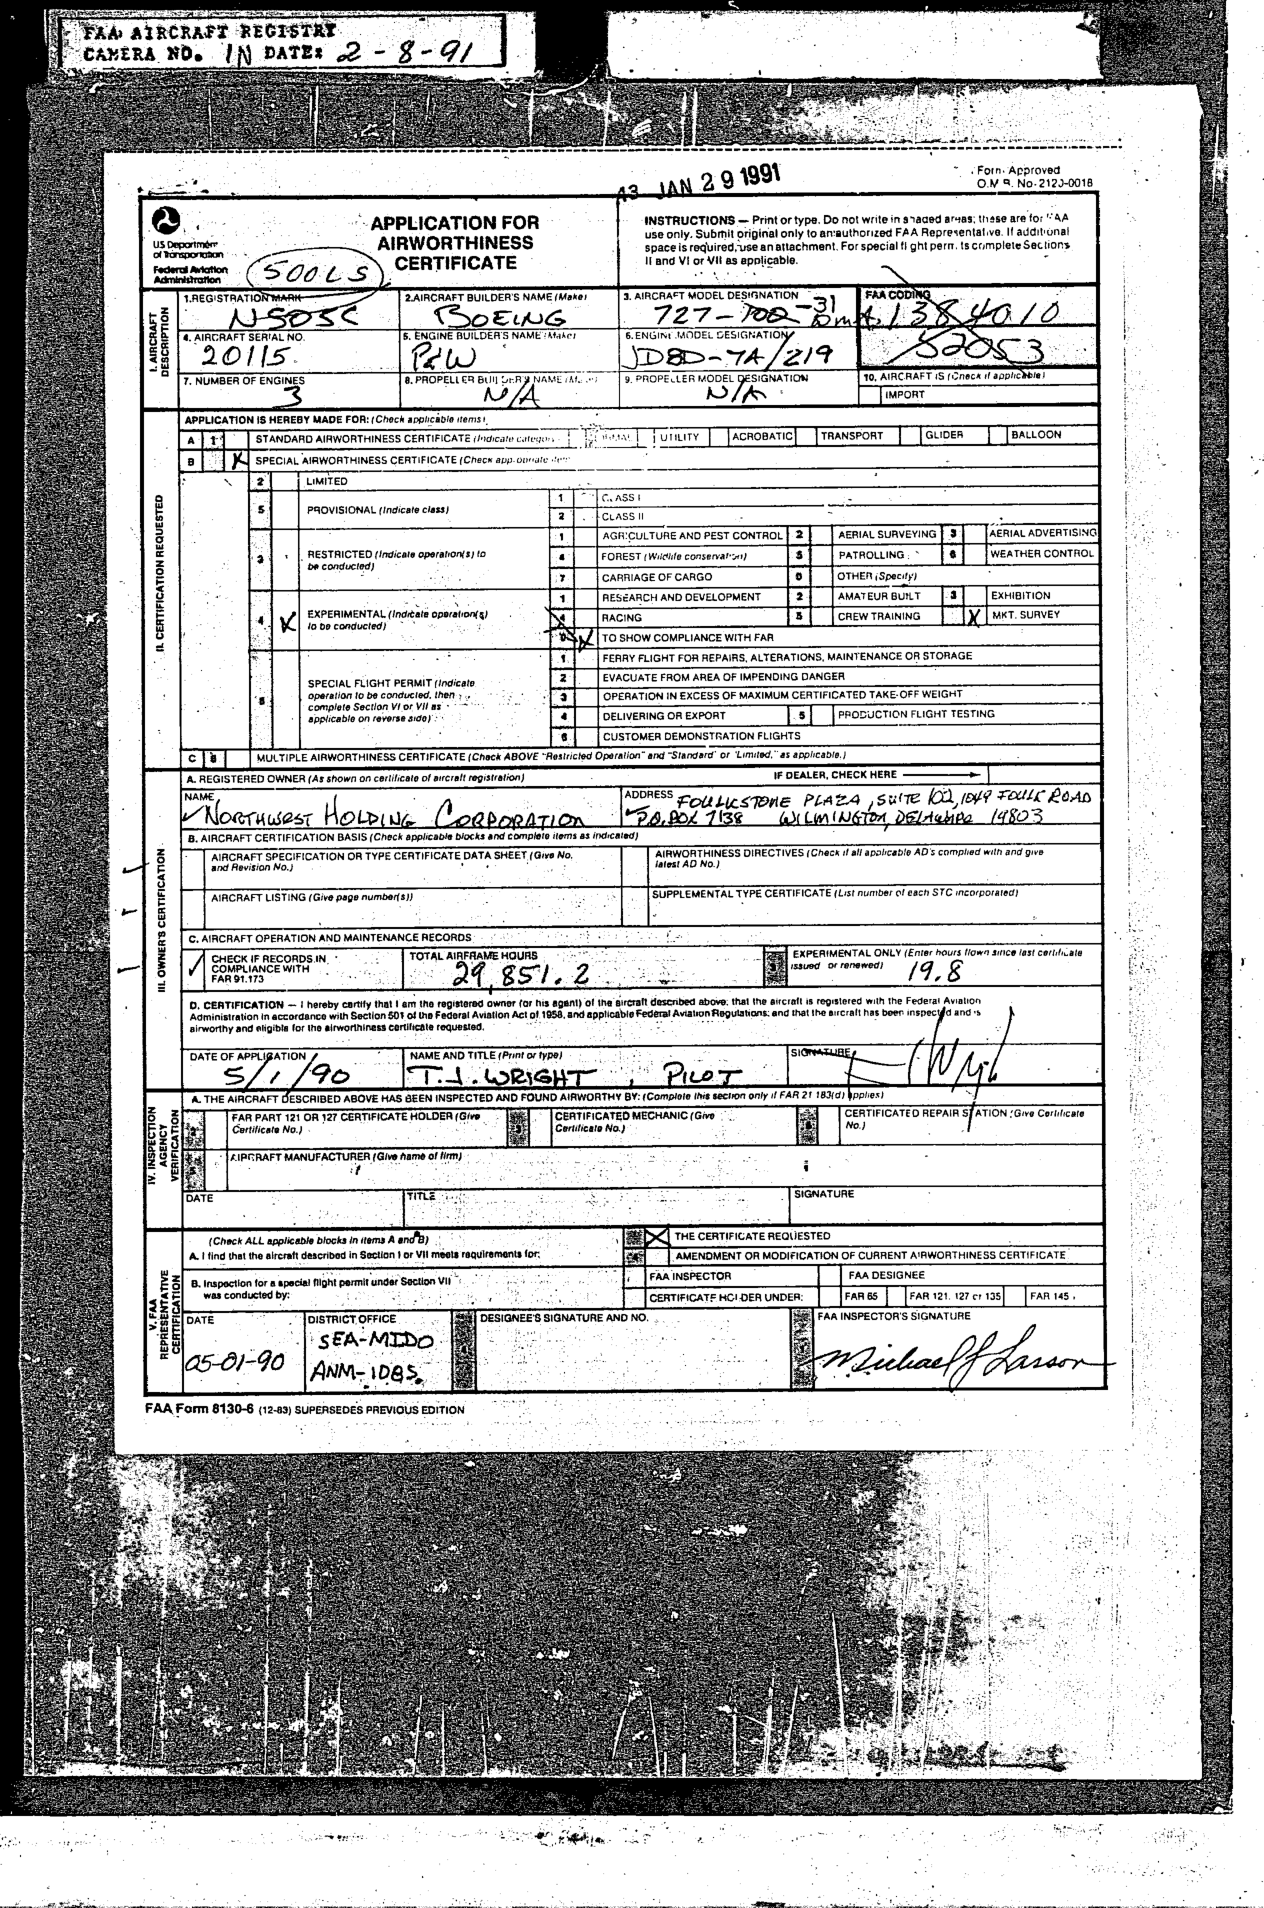 FAA AIRCRAFT REGISTRY
CAMERA NO. IN DATE: 2-8-91
JAN 29 1991
Form Approved
O.M.B. No. 2120-0018
US Department
of Transportation
Federal Aviation
Administration
500LS
APPLICATION FOR
AIRWORTHINESS
CERTIFICATE
INSTRUCTIONS — Print or type. Do not write in shaded areas; these are for FAA
use only. Submit original only to an authorized FAA Representative. If additional
space is required, use an attachment. For special flight permits complete Sections
II and VI or VII as applicable.
I. AIRCRAFT
DESCRIPTION
1.REGISTRATION MARK
N505C
2.AIRCRAFT BUILDER'S NAME (Make)
BOEING
3. AIRCRAFT MODEL DESIGNATION
727-100-31
FAA CODING
1384010
4. AIRCRAFT SERIAL NO.
20115
5. ENGINE BUILDER'S NAME (Make)
P&W
6. ENGINE MODEL DESIGNATION
JD8D-7A/219
52053
7. NUMBER OF ENGINES
3
8. PROPELLER BUILDER'S NAME
N/A
9. PROPELLER MODEL DESIGNATION
N/A
10. AIRCRAFT IS (Check if applicable)
IMPORT
II. CERTIFICATION REQUESTED
APPLICATION IS HEREBY MADE FOR: (Check applicable items)
A 1 STANDARD AIRWORTHINESS CERTIFICATE (Indicate category) NORMAL UTILITY ACROBATIC TRANSPORT GLIDER BALLOON
B X SPECIAL AIRWORTHINESS CERTIFICATE (Check appropriate items)
2 LIMITED
5 PROVISIONAL (Indicate class)
1 CLASS I
2 CLASS II
3 RESTRICTED (Indicate operation(s) to
be conducted)
1 AGRICULTURE AND PEST CONTROL 2 AERIAL SURVEYING 3 AERIAL ADVERTISING
4 FOREST (Wildlife conservation) 5 PATROLLING 6 WEATHER CONTROL
7 CARRIAGE OF CARGO 0 OTHER (Specify)
4 X EXPERIMENTAL (Indicate operation(s)
to be conducted)
1 RESEARCH AND DEVELOPMENT 2 AMATEUR BUILT 3 EXHIBITION
4 RACING 5 CREW TRAINING X MKT. SURVEY
0 X TO SHOW COMPLIANCE WITH FAR
8 SPECIAL FLIGHT PERMIT (Indicate
operation to be conducted, then
complete Section VI or VII as
applicable on reverse side)
1 FERRY FLIGHT FOR REPAIRS, ALTERATIONS, MAINTENANCE OR STORAGE
2 EVACUATE FROM AREA OF IMPENDING DANGER
3 OPERATION IN EXCESS OF MAXIMUM CERTIFICATED TAKE-OFF WEIGHT
4 DELIVERING OR EXPORT 5 PRODUCTION FLIGHT TESTING
6 CUSTOMER DEMONSTRATION FLIGHTS
C MULTIPLE AIRWORTHINESS CERTIFICATE (Check ABOVE "Restricted Operation" and "Standard" or "Limited," as applicable.)
III. OWNER'S CERTIFICATION
A. REGISTERED OWNER (As shown on certificate of aircraft registration)
IF DEALER, CHECK HERE
NAME
✓ NORTHWEST HOLDING CORPORATION
ADDRESS FOULKSTONE PLAZA, SUITE 102, 1049 FOULK ROAD
✓ P.O. BOX 7138 WILMINGTON, DELAWARE 19803
B. AIRCRAFT CERTIFICATION BASIS (Check applicable blocks and complete items as indicated)
AIRCRAFT SPECIFICATION OR TYPE CERTIFICATE DATA SHEET (Give No.
and Revision No.)
AIRWORTHINESS DIRECTIVES (Check if all applicable AD's complied with and give
latest AD No.)
AIRCRAFT LISTING (Give page number(s))
SUPPLEMENTAL TYPE CERTIFICATE (List number of each STC incorporated)
C. AIRCRAFT OPERATION AND MAINTENANCE RECORDS
✓ CHECK IF RECORDS IN
COMPLIANCE WITH
FAR 91.173
TOTAL AIRFRAME HOURS
29,851.2
EXPERIMENTAL ONLY (Enter hours flown since last certificate
issued or renewed)
19.8
D. CERTIFICATION — I hereby certify that I am the registered owner (or his agent) of the aircraft described above; that the aircraft is registered with the Federal Aviation
Administration in accordance with Section 501 of the Federal Aviation Act of 1958, and applicable Federal Aviation Regulations; and that the aircraft has been inspected and is
airworthy and eligible for the airworthiness certificate requested.
DATE OF APPLICATION
5/1/90
NAME AND TITLE (Print or type)
T.J. WRIGHT, PILOT
SIGNATURE
IV. INSPECTION
AGENCY
VERIFICATION
A. THE AIRCRAFT DESCRIBED ABOVE HAS BEEN INSPECTED AND FOUND AIRWORTHY BY: (Complete this section only if FAR 21 183(d) applies)
FAR PART 121 OR 127 CERTIFICATE HOLDER (Give
Certificate No.)
CERTIFICATED MECHANIC (Give
Certificate No.)
CERTIFICATED REPAIR STATION (Give Certificate
No.)
AIRCRAFT MANUFACTURER (Give name of firm)
DATE
TITLE
SIGNATURE
V. FAA
REPRESENTATIVE
CERTIFICATION
(Check ALL applicable blocks in items A and B)
A. I find that the aircraft described in Section I or VII meets requirements for:
X THE CERTIFICATE REQUESTED
AMENDMENT OR MODIFICATION OF CURRENT AIRWORTHINESS CERTIFICATE
B. Inspection for a special flight permit under Section VII
was conducted by:
FAA INSPECTOR
FAA DESIGNEE
CERTIFICATE HOLDER UNDER: FAR 65 FAR 121, 127 or 135 FAR 145
DATE
05-01-90
DISTRICT OFFICE
SEA-MIDO
ANM-108S
DESIGNEE'S SIGNATURE AND NO.
FAA INSPECTOR'S SIGNATURE
Michael J Larson
FAA Form 8130-6 (12-83) SUPERSEDES PREVIOUS EDITION